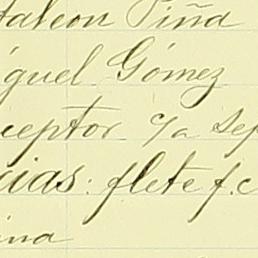 taleon Piña
iguel Gómez
ceptor c/a Sep
cias: flete f.c
ina